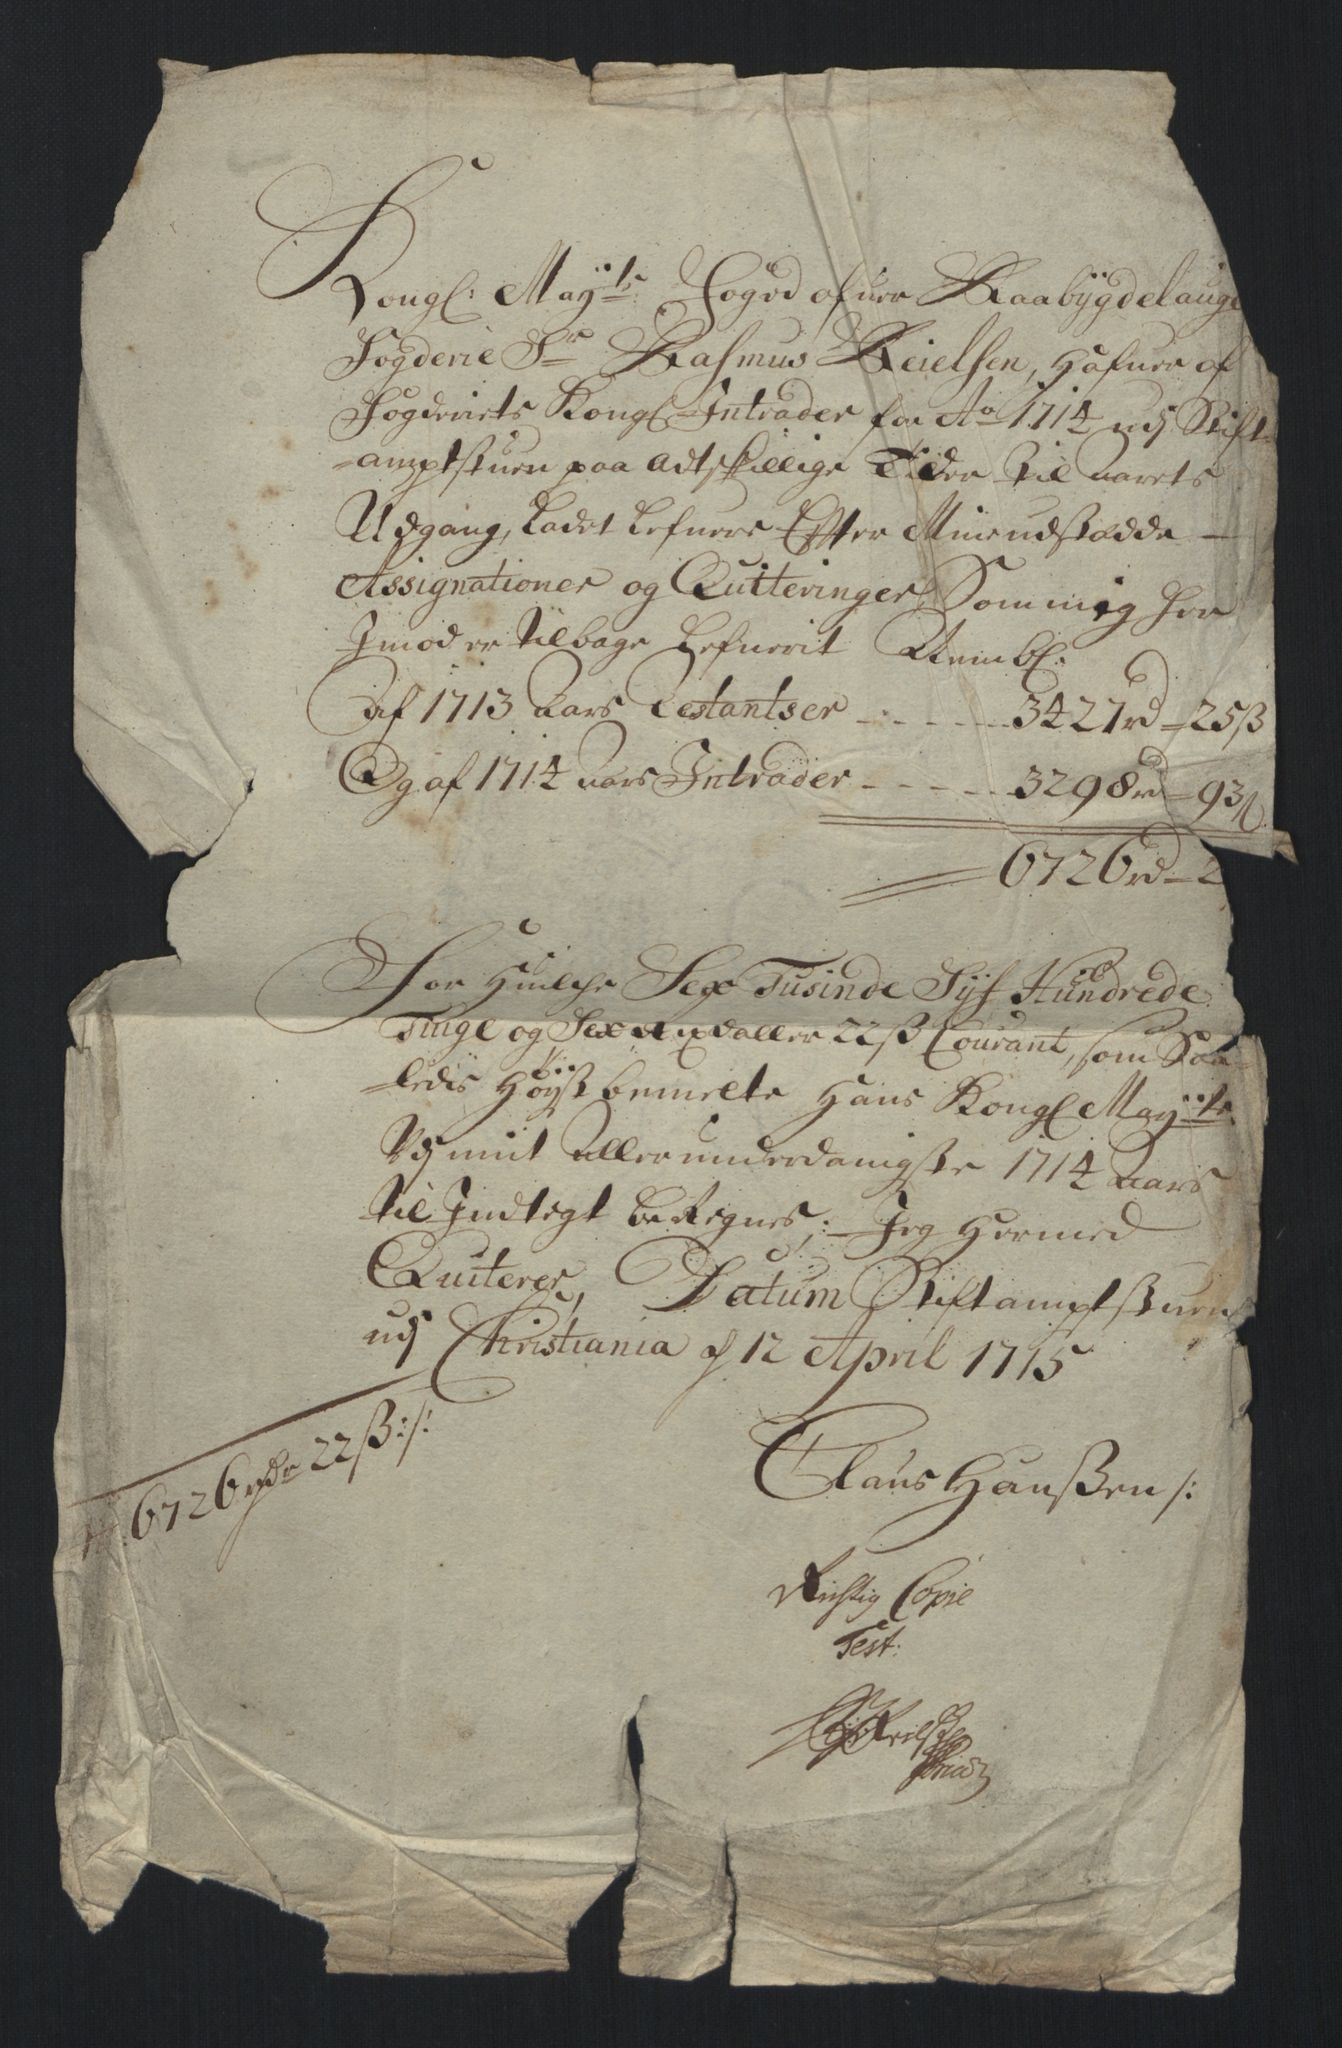 Kongl: Mayts: Foged ofuer Raabÿgdelauge
Fogderie Sr Rasmus Keielsen, hafuer af
Fogderiets Kongl Intrader for Ao 1714 udj Stift-
-amptstuen paa adtskillige Tider til aarets
Udgang, ladet lefuere Efter Mine udstædde -
Assignationer og Quitteringer, Som mig her
Imod er tilbage lefuerit Neml:
Af 1713 Aars Restantser - - - - - - 3427rd - 25ß
Og af 1714 aars Intrader - - - - - 3298rd - 93ß
6726rd - 2
For huilche Sex Tusinde Sÿf Hundrede
Tiuge og Sex Rixdaller 22ß Courant, som Saa-
-ledis Höÿstbemelte Hans Kongl Maÿtz
Udj mit allerunderdanigste 1714 Aars
til Indtegt beregnes; Jeg hermed
Quiterer, Datum Stiftamptstuen
udj Christiania d 12 April 1715
6726 rdr 22ß:/:
Claus Hanßen /:
Rigtig Copie
Test: